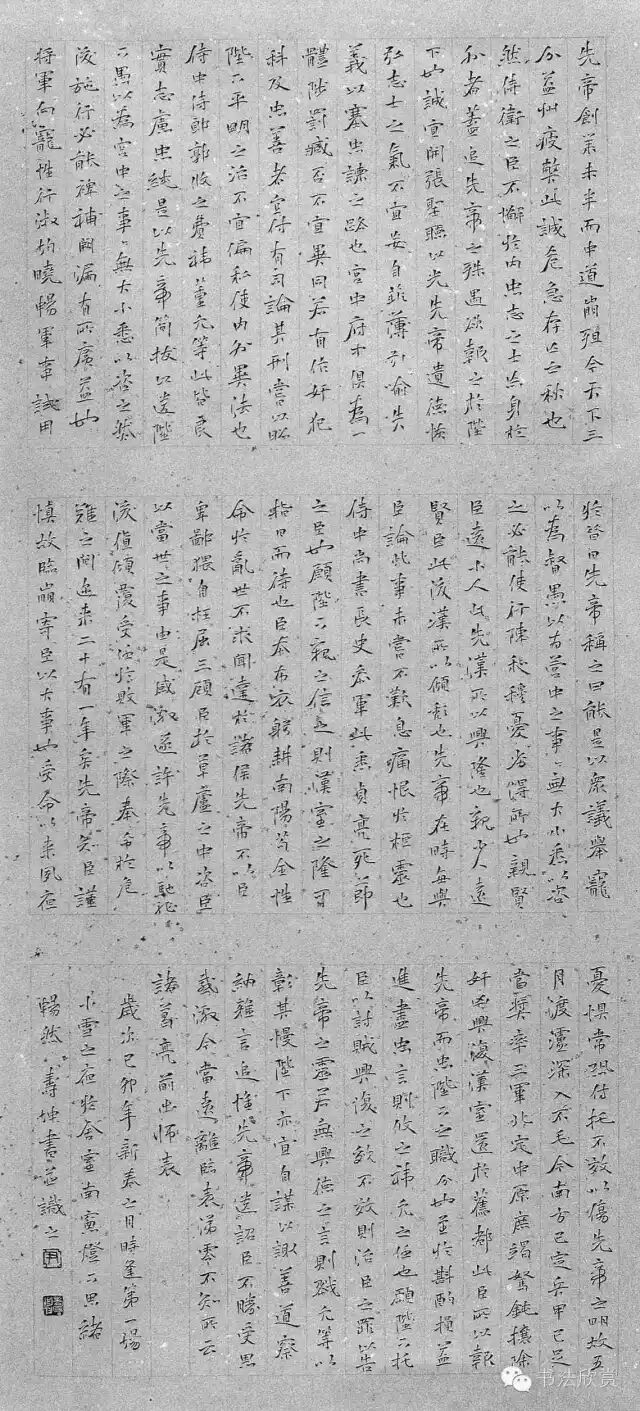 先帝創業未半而中道崩殂今天下三
分益州疲弊此誠危急存亡之秋也
然侍衛之臣不懈於內忠志之士忘身於
外者蓋追先帝之殊遇欲報之於陛
下也誠宜開張聖聽以光先帝遺德恢
弘志士之氣不宜妄自菲薄引喻失
義以塞忠諫之路也宮中府中俱為一
體陟罰臧否不宜異同若有作奸犯
科及忠善者宜付有司論其刑賞以昭
陛下平明之治不宜偏私使內外異法也
侍中侍郎郭攸之費禕董允等此皆良
實志慮忠純是以先帝簡拔以遺陛
下愚以為宮中之事々無大小悉以咨之然
後施行必能裨補闕漏有所廣益也
將軍向寵性行淑均曉暢軍事試用
於昔日先帝稱之曰能是以眾議舉寵
以為督愚以為營中之事々無大小悉以咨
之必能使行陳和穆優劣得所也親賢
臣遠小人此先漢所以興隆也親小人遠
賢臣此後漢所以傾頹也先帝在時每與
臣論此事未嘗不歎息痛恨於桓靈也
侍中尚書長史參軍此悉貞亮死節
之臣也願陛下親之信之則漢室之隆可
指日而待也臣本布衣躬耕南陽苟全性
命於亂世不求聞達於諸侯先帝不以臣
卑鄙猥自枉屈三顧臣於草廬之中咨臣
以當世之事由是感激遂許先帝以馳驅
後值傾覆受任於敗軍之際奉命於危
難之間迩来二十有一年矣先帝知臣謹
慎故臨崩寄臣以大事也受命以来夙夜
憂懼常恐付托不效以傷先帝之明故五
月渡瀘深入不毛今南方已定兵甲已足
當獎率三軍北定中原庶竭駑鈍攘除
奸凶興復漢室還於舊都此臣所以報
先帝而忠陛下之職分也至於斟酌損益
進盡忠言則攸之禕允之任也願陛下托
臣以討賊興復之效不效則治臣之罪以告
先帝之靈若無興德之言則戮允等以
彰其慢陛下亦宜自謀以諏善道察
納雅言追惟先帝遺詔臣不勝受恩
感激今當遠離臨表涕零不知所云
諸葛亮前出師表
歲次己卯年新春之月時逢第一場
小雪之夜於含靈南窗燈下思緒
暢然壽坤書並識之
书法欣赏